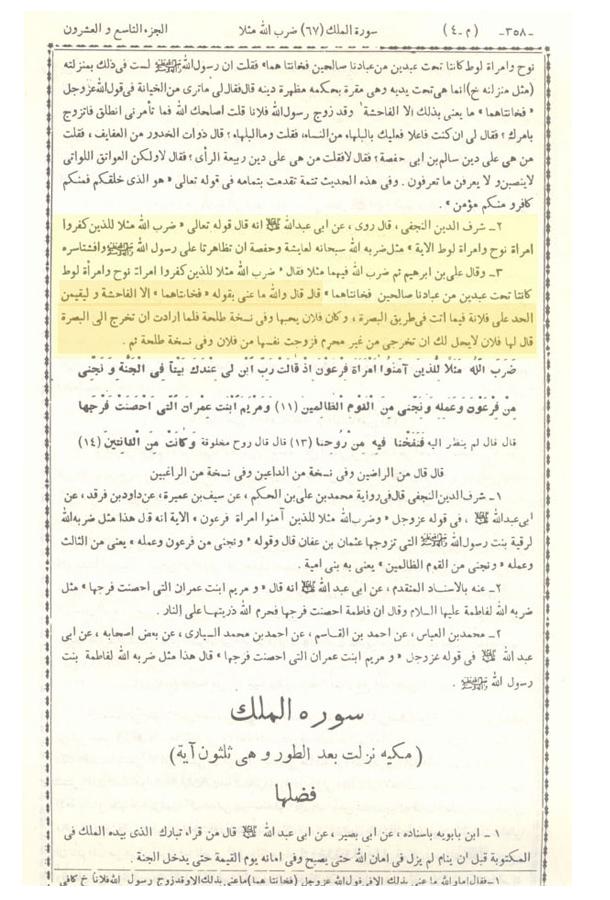 -٣٥٨- (م-٤) سورة الملك (٦٧) ضرب الله مثلا الجزء التاسع و العشرون
نوح وامراة لوط كانتا تحت عبدين من عبادنا صالحين فخانتا هما» فقلت ان رسول الله لست فى ذلك بمنزلته
(مثل منزلته خ) انما هى تحت يديه وهى مقرة بحكمه مظهرة دينه قال فقال لى ماترى من الخيانة فى قول الله عزوجل
« فخانتاهما » ما يعنى بذلك الا الفاحشة وقد زوج رسول الله فلانا قلت اصلحك الله فما تأمرنى انطلق فاتزوج
بامرك ؟ فقال لى ان كنت فاعلا فعليك بالبلهاء من النساء، فقلت وما البلهاء؟ قال ذوات الخدور من العفايف ، فقلت
من هى على دين سالم بن ابى حفصة ؟ فقال لا فقلت من هى على دين ربيعة الرأى ؟ فقال لا ولكن العواتق اللواتى
لا ينصبن و لا يعرفن ما تعرفون . وفى هذه الحديث تتمة تقدمت بتمامه فى قوله تعالى « هو الذى خلقكم فمنكم
كافر و منكم مؤمن » .
٢- شرف الدين النجفى ، قال روى ، عن ابى عبدالله انه قال قوله تعالى « ضرب الله مثلا للذين كفروا
امراة نوح وامراة لوط الاية » مثل ضربه الله سبحانه لعايشة وحفصة ان تظاهرتا على رسول الله وافشتاسره
٣- وقال على بن ابرهيم ثم ضرب الله فيهما مثلا فقال « ضرب الله مثلا للذين كفروا امراة نوح وامرأة لوط
كانتا تحت عبدين من عبادنا صالحين فخانتاهما » قال قال والله ما عنى بقوله « فخانتاهما » الا الفاحشة و ليقيمن
الحد على فلانة فيما اتت فى طريق البصرة ، وكان فلان يحبها وفى نسخة طلحة فلما ارادت ان تخرج الى البصرة
قال لها فلان لايحل لك ان تخرجى من غير محرم فزوجت نفسها من فلان وفى نسخة طلحة ثم .
ضَرَبَ اللّه مَثَلًا لِلَّذينَ آمَنُوا امْرَأَةَ فِرْعَونَ اِذْ قالَتْ رَبِّ ابْنِ لى عِنْدَكَ بَيْتاً فى الْجَنَّةِ وَ نَجِّنى
مِنْ فِرْعَوْنَ وَ عَمَلِه وَ نَجِّنى مِنَ الْقَوْمِ الظّالِمينَ (١١) وَ مَرْيَمَ ابْنَتَ عِمْرانَ الَّتى اَحْصَنَتْ فَرْجَها
قال قال لم ينظر اليه فَنَفَخْنا فيهِ مِنْ رُوحِنا (١٣) قال قال روح مخلوقة وَ كانَتْ مِنَ الْقانِتينَ (١٤)
قال قال من الراضين وفى نسخة من الداعين وفى نسخة من الراغبين
١- شرف الدين النجفى قال فى رواية محمد بن على بن الحكم ، عن سيف بن عميرة، عن داود بن فرقد ، عن
ابى عبدالله ، فى قوله عزوجل « وضرب الله مثلا للذين آمنوا امراة فرعون » الاية انه قال هذا مثل ضربه الله
لرقية بنت رسول الله التى تزوجها عثمان بن عفان قال وقوله « ونجنى من فرعون وعمله » يعنى من الثالث
وعمله « ونجنى من القوم الظالمين » يعنى به بنى امية .
٢- عنه بالاسناد المتقدم ، عن ابى عبد الله انه قال « و مريم ابنت عمران التى احصنت فرجها » مثل
ضربه الله لفاطمة عليها السلام وقال ان فاطمة احصنت فرجها فحرم الله ذريتها على النار .
٢- محمد بن العباس ، عن احمد بن القاسم ، عن احمد بن محمد السيارى ، عن بعض اصحابه ، عن ابى
عبد الله فى قوله عزوجل « و مريم ابنت عمران التى احصنت فرجها » قال هذا مثل ضربه الله لفاطمة بنت
رسول الله .
سوره الملك
(مكيه نزلت بعد الطور و هى ثلثون آية)
فضلها
١- ابن بابويه باسناده ، عن ابى بصير ، عن ابى عبد الله قال من قراء تبارك الذى بيده الملك فى
المكتوبة قبل ان ينام لم يزل فى امان الله حتى يصبح وفى امانه يوم القيمة حتى يدخل الجنة .
١- فقال اما والله ما عنى بذلك الا فى قول الله عزوجل (فخانتا هما) ما عنى بذلك الا وقد زوج رسول الله فلانا خ كافى